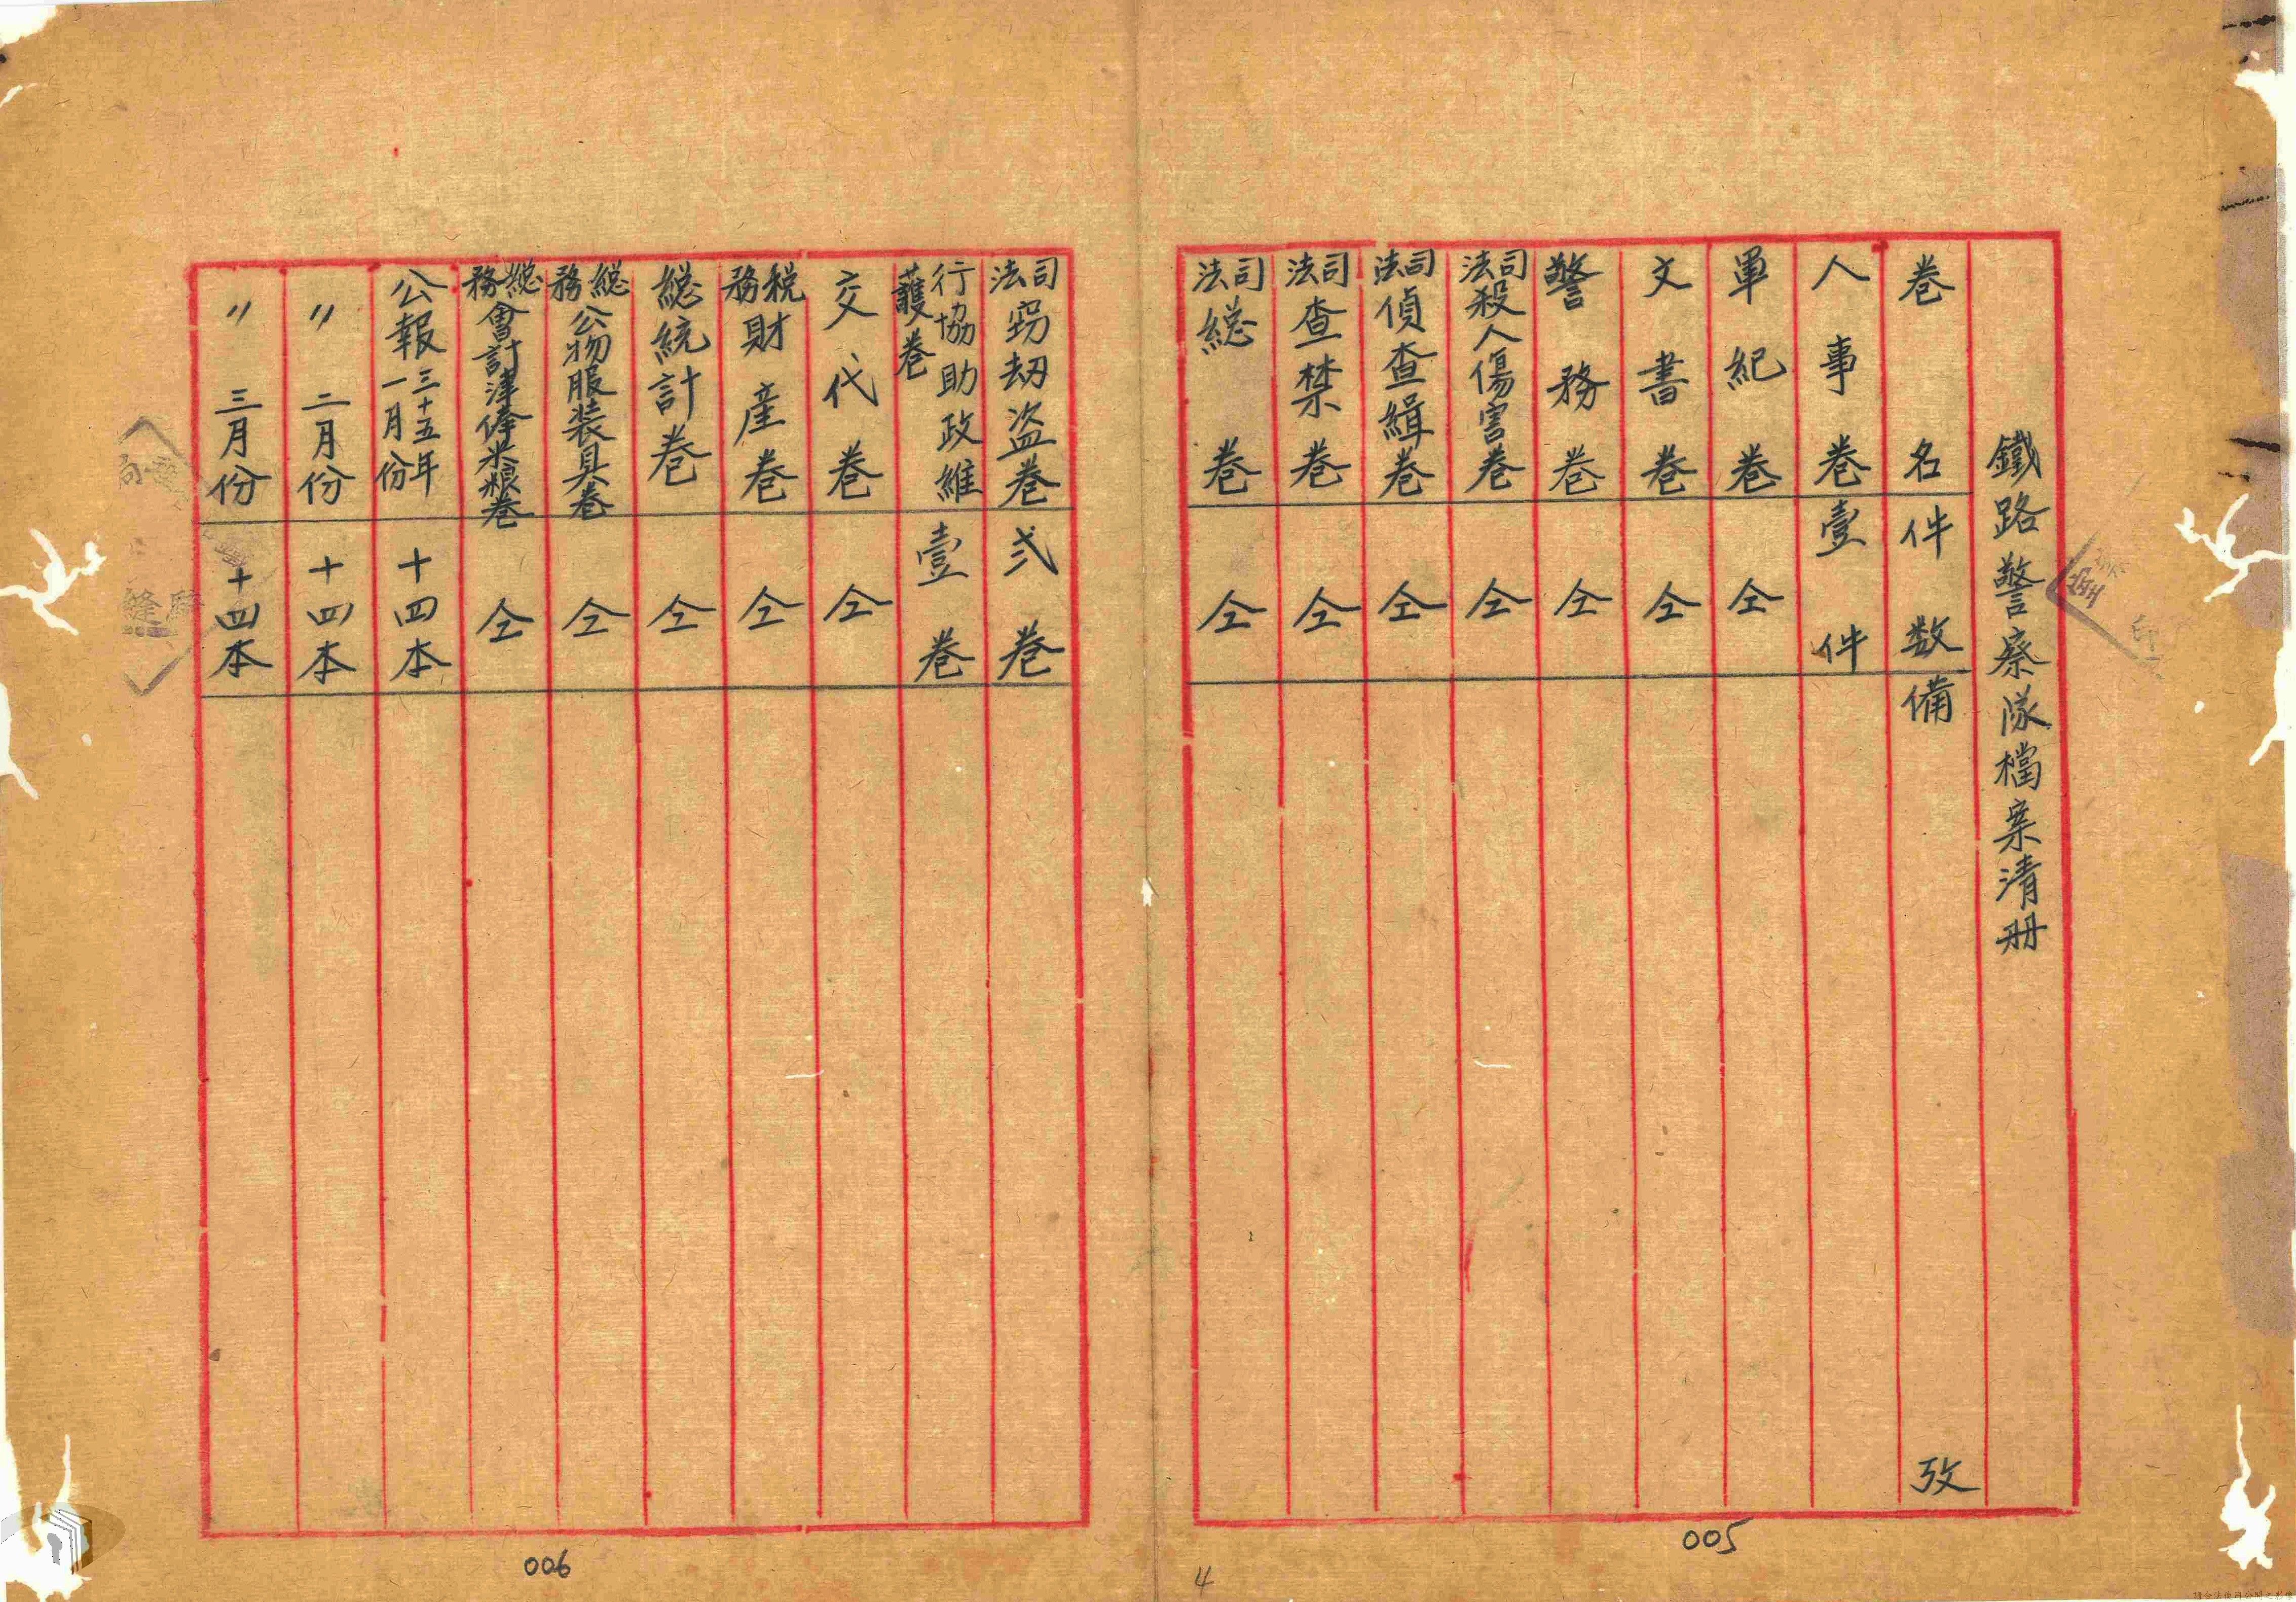 鐵路警察隊檔案清册
卷名 件数 備攷
人事卷 壹件
軍紀卷 仝
文書卷 仝
警務卷 仝
司法殺人傷害卷 仝
司法偵查緝卷 仝
司法查禁卷 仝
司法総卷 仝
司法竊劫盗卷 弍卷
行協助政維護卷 壹卷
交代卷 仝
税務財産卷 仝
総統計卷 仝
総務公物服装具卷 仝
総務會計津俸米粮卷 仝
公報三十五年一月份 十四本
〃 二月份 十四本
〃 三月份 十四本
005
006
4